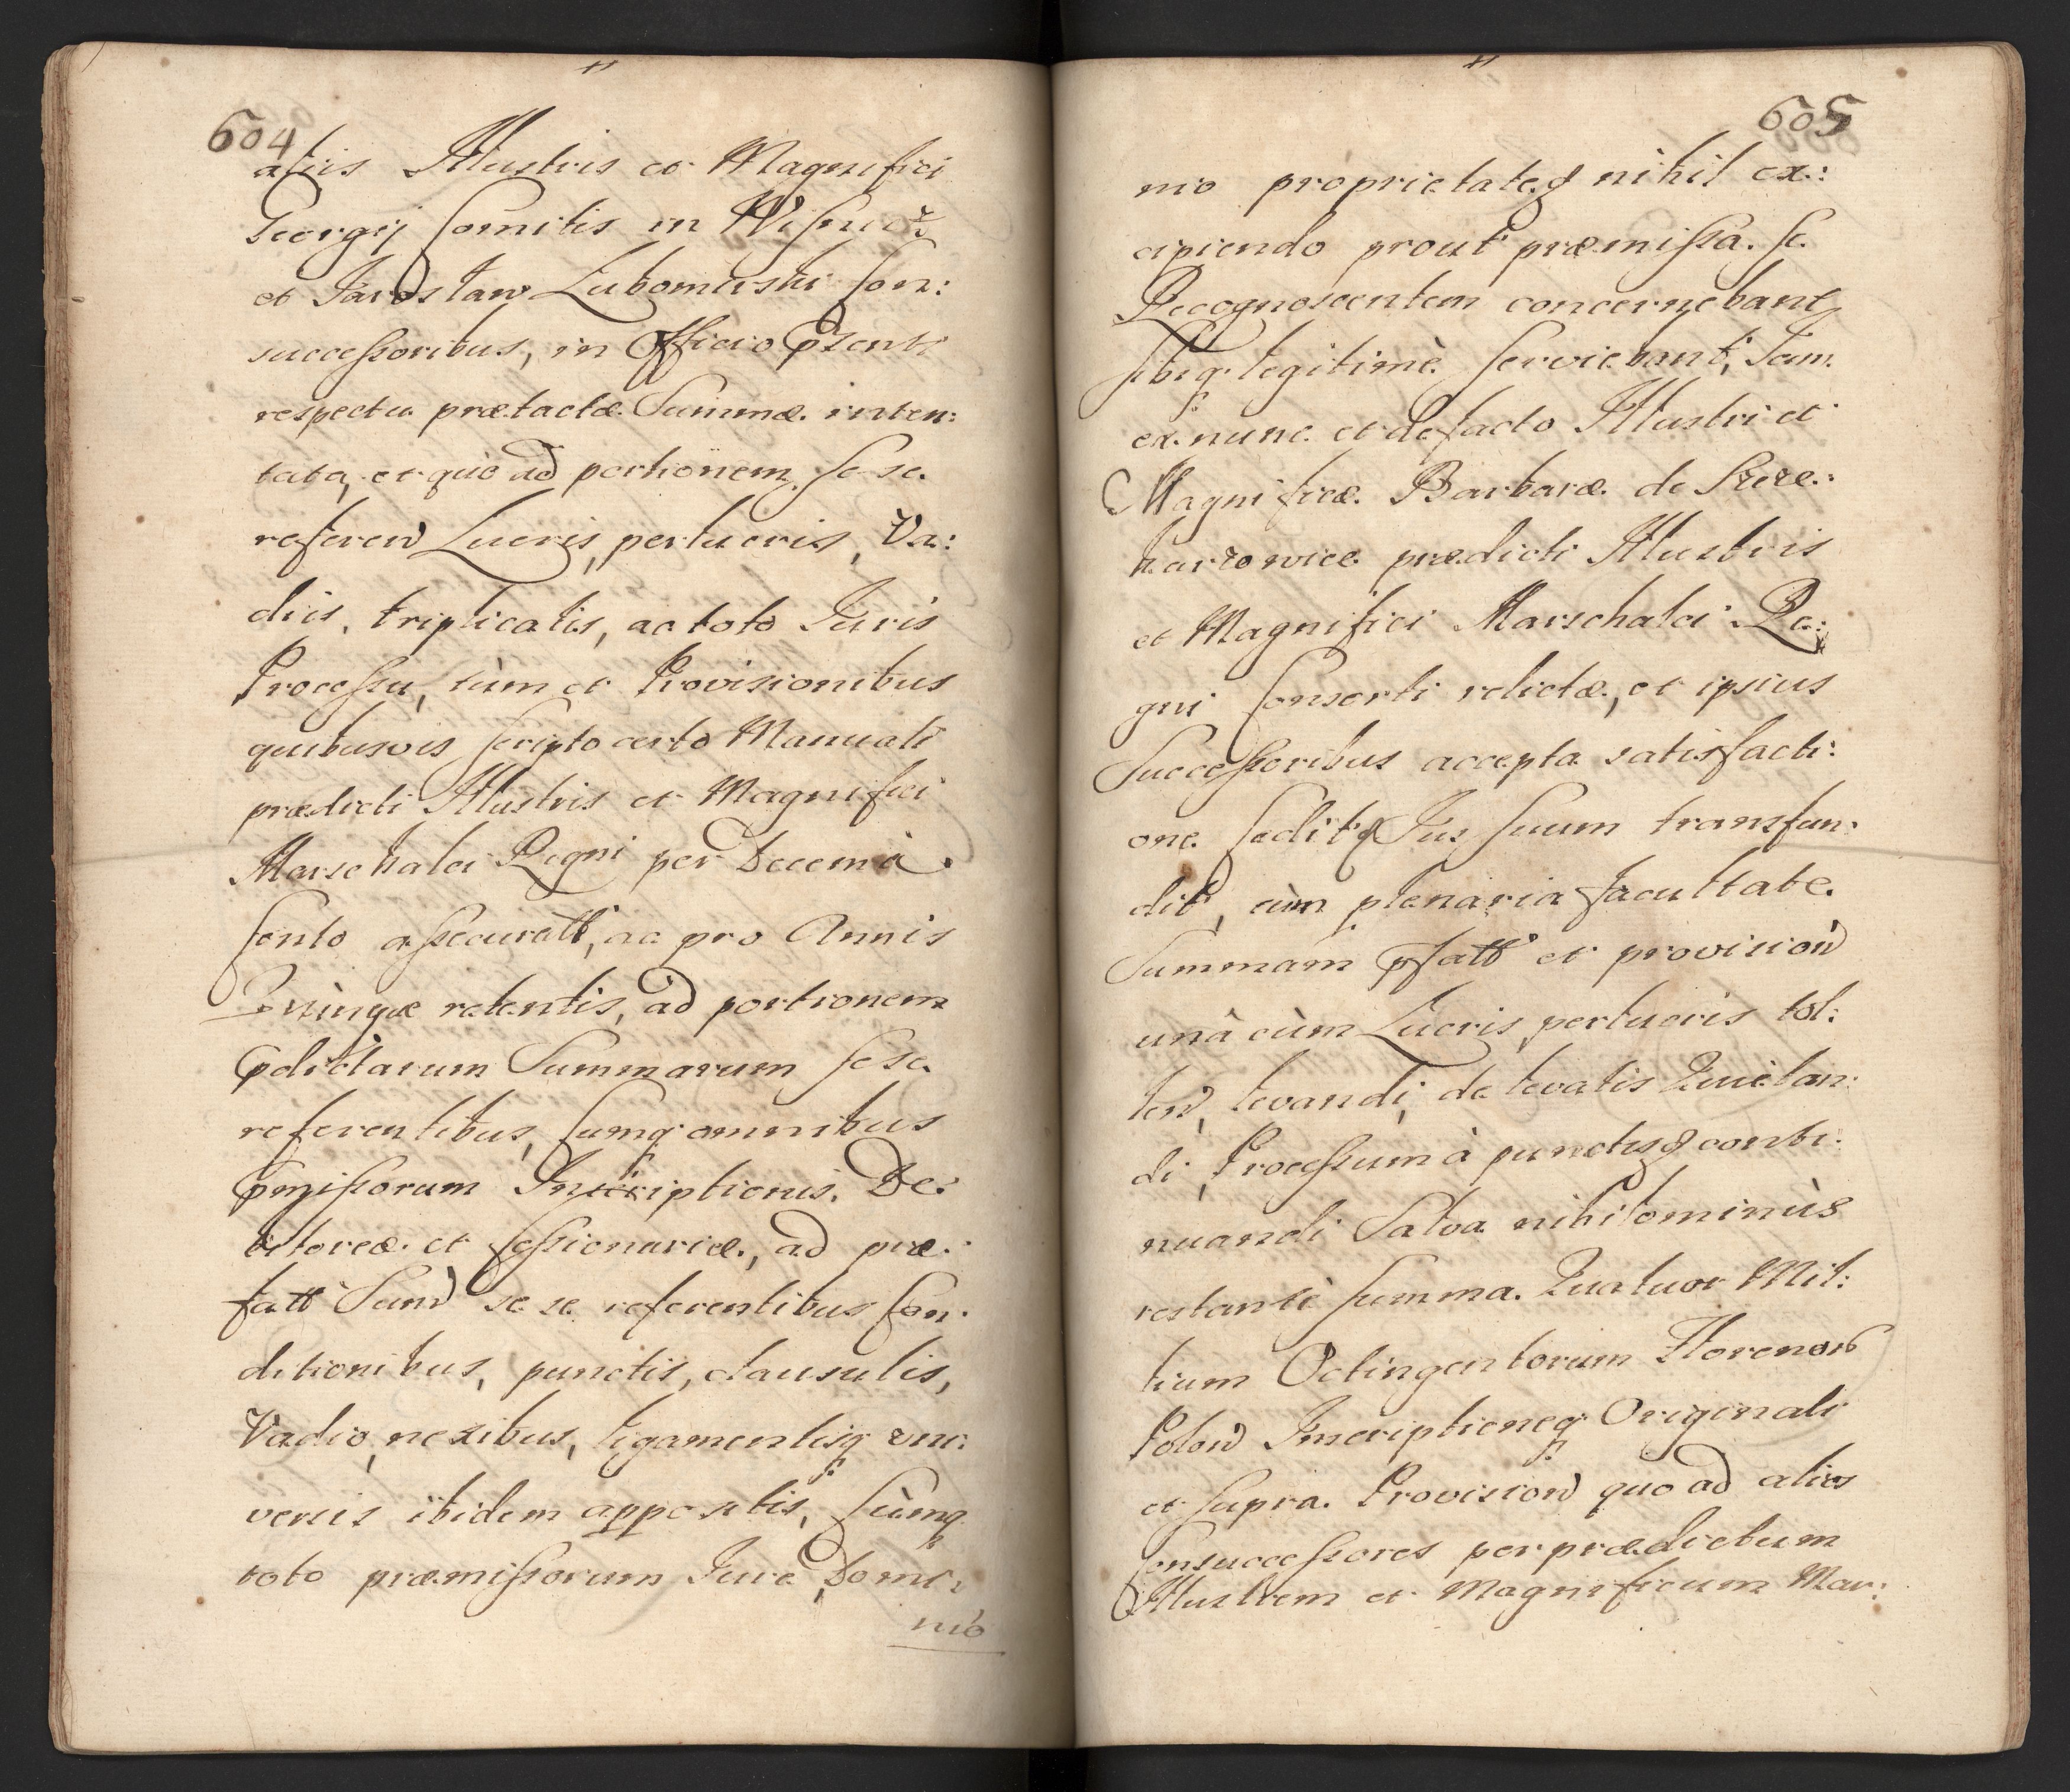 604
aliis Illustris et Magnifici
Georgij Comitis in Wisnicz
et Jaroslaw Lubomirski Con:
successoribus, in Officio Psenti
respectu prætactæ Summæ inten:
tata, et quo ad portionem se se
referen Lucris, perlucris, Va:
diis, triplicatis, ac toto Juris
Processu, cùm et Provisionibus
quibusvis scripto certo Manuali
prædicti Illustris et Magnifici
Marschalci Regni per Decem à
Cento assecuratt, ac pro Annis
Quinque retentis, ad portionem
pdictarum Summarum sese
referentibus, Cumq omnibus
pmissorum Inscriptionis De:
bitoreæ et Cessionariæ, ad præ:
fatt Sum se se referentibus Con:
ditionibus, punctis, clausulis,
Vadio, nexibus, ligamentisq uni:
versis ibidem appositis, Cùmq
toto præmissorum Jure Domi:
nio
605
nio proprietateq nihil ex:
cipiendo prout præmissa se
Recognoscentem concernebant
sibiq legitimè serviebant, Jam
ex nunc et de facto Illustri et
Magnificæ Barbaræ de
prædicti Illustris
et Magnifici Marschalci Re:
gni Consorti relictæ, et ipsius
Successoribus accepta satisfacti:
one Cedit q Jus suum transfun:
dit, cùm plenaria facultate
Summam pfatt et provision
unà cùm Lucris perlucris tol:
len, levandi, de levatis Quietan:
di, Processum à punctis q conti:
nuandi Salva nihilominùs
restanti summa Quatuor Mil:
lium Octingentorum Florenor
Polon Inscriptioneq Originali
et supra Provision quo ad alios
Consuccessores per prædictum
Illustrem et Magnificum Mar: